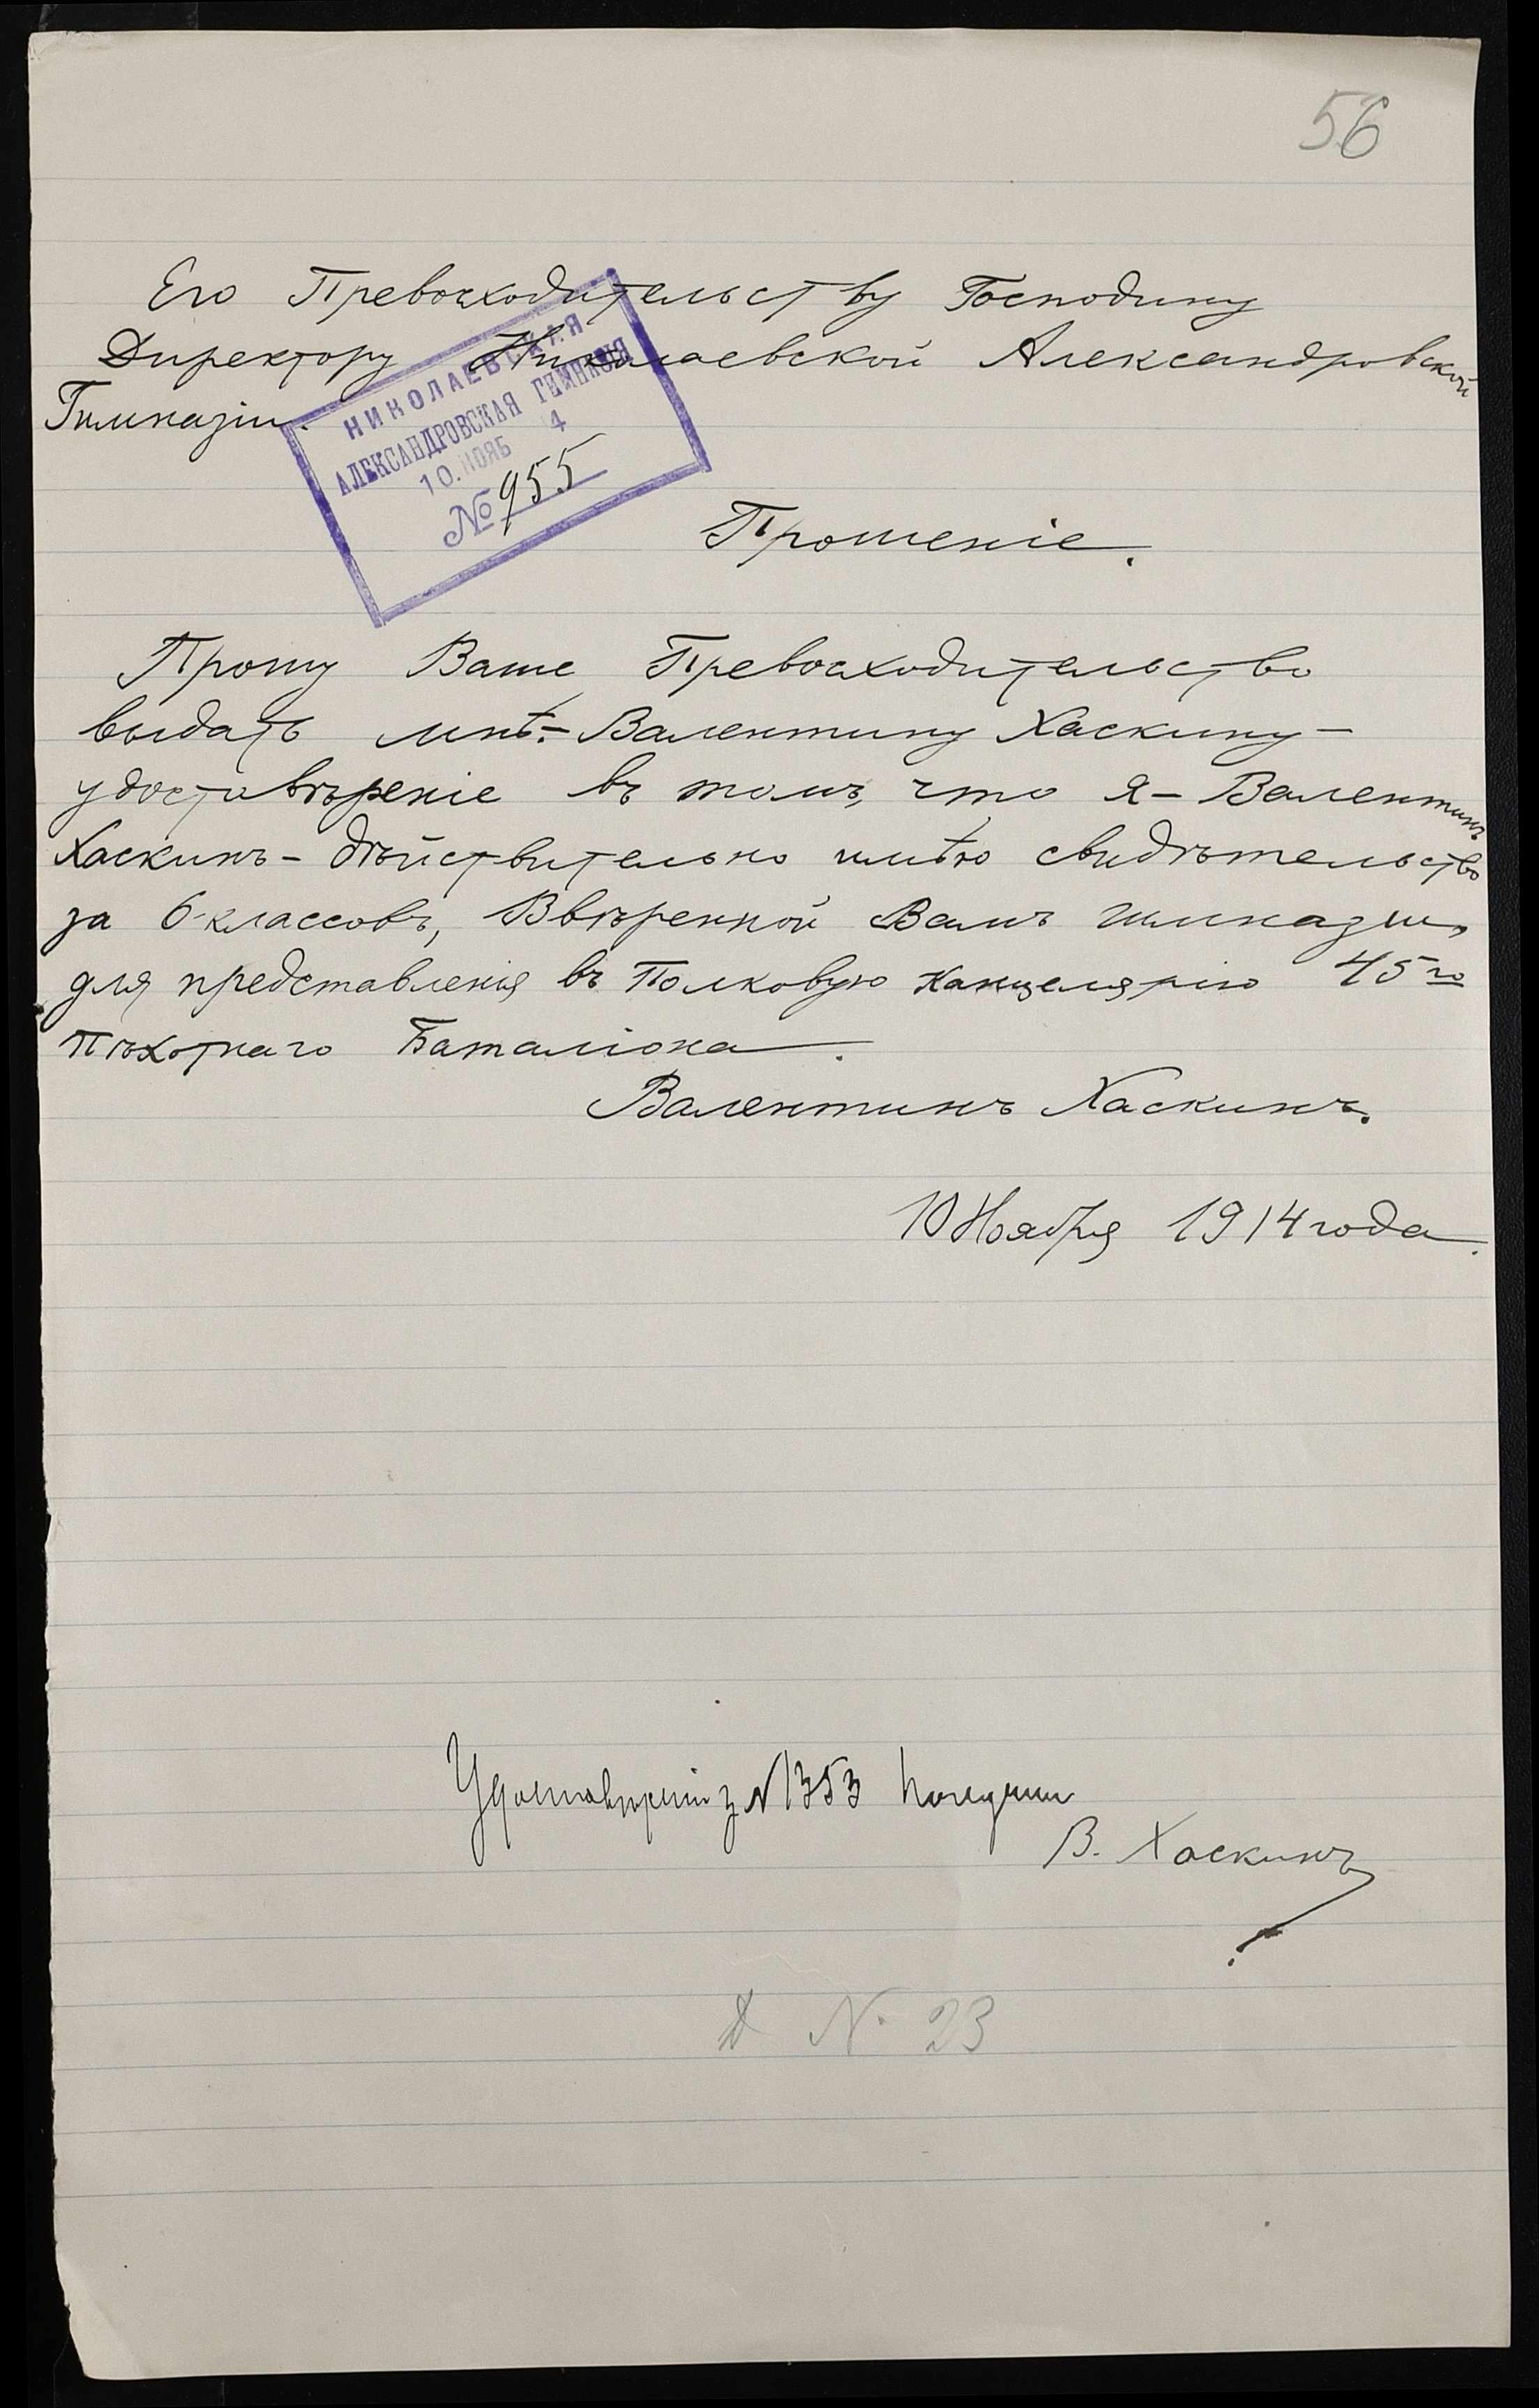 56
Его Превосходительству Господину
Директору Николаевской Александровской
Гимназіи.
НИКОЛАЕВСКАЯ
АЛЕКСАНДРОВСКАЯ ГИМНАЗІЯ
10. НОЯБ 4
№ 955
Прошеніе.
Прошу Ваше Превосходительство
выдать мнѣ - Валентину Хаскину -
удостовѣреніе въ томъ, что я - Валентинъ
Хаскинъ - дѣйствительно имѣю свидѣтельство
за 6 классовъ, Ввѣренной Вамъ гимназіи,
для представленія въ Полковую Канцелярію 45го
Пѣхотнаго Баталіона.
Валентинъ Хаскинъ.
10 Ноября 1914 года.
Удостовѣреніе з № 1353 получилъ
В. Хаскинъ
Д № 23